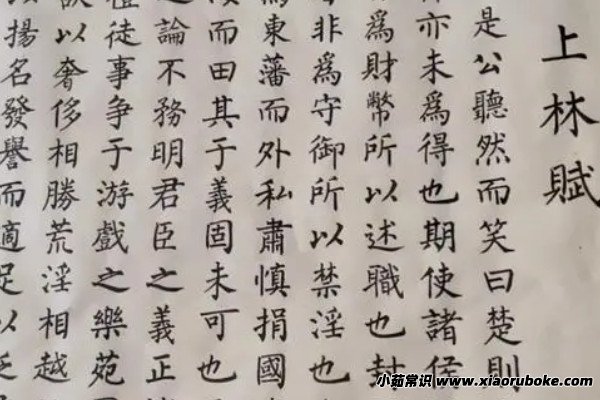 上林賦
是公聽然而笑曰楚則
亦未為得也期使諸侯
為財幣所以述職也封
非為守御所以禁淫也
為東藩而外私肅慎捐國
而田其于義固未可也
之論不務明君臣之義正
徒事爭于游戲之樂苑
以奢侈相勝荒淫相越
揚名發譽而適足以
小茹常识 www.xiaoruboke.com